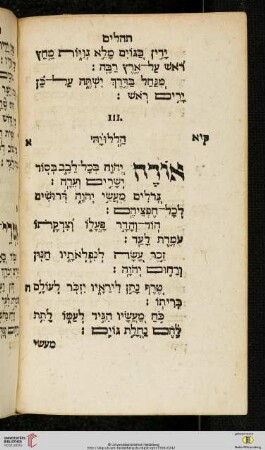 תהלים
יָדִין בַּגּוֹיִם מָלֵא גְוִיּוֹת מָחַץ
רֹאשׁ עַל־אֶרֶץ רַבָּה׃
מִנַּחַל בַּדֶּרֶךְ יִשְׁתֶּה עַל־כֵּן
יָרִים רֹאשׁ׃
III.
קיא הַלְלוּיָהּ א
אוֹדֶה יְהוָה בְּכָל־לֵבָב בְּסוֹד
יְשָׁרִים וְעֵדָה׃
גְּדֹלִים מַעֲשֵׂי יְהוָה דְּרוּשִׁים
לְכָל־חֶפְצֵיהֶם׃
הוֹד־וְהָדָר פָּעֳלוֹ וְצִדְקָתוֹ
עֹמֶדֶת לָעַד׃
זֵכֶר עָשָׂה לְנִפְלְאֹתָיו חַנּוּן
וְרַחוּם יְהוָה׃
טֶרֶף נָתַן לִירֵאָיו יִזְכֹּר לְעוֹלָם ה
בְּרִיתוֹ׃
כֹּחַ מַעֲשָׂיו הִגִּיד לְעַמּוֹ לָתֵת
לָהֶם נַחֲלַת גּוֹיִם׃
מעשי
UNIVERSITÄTS-
BIBLIOTHEK
HEIDELBERG
© Universitätsbibliothek Heidelberg